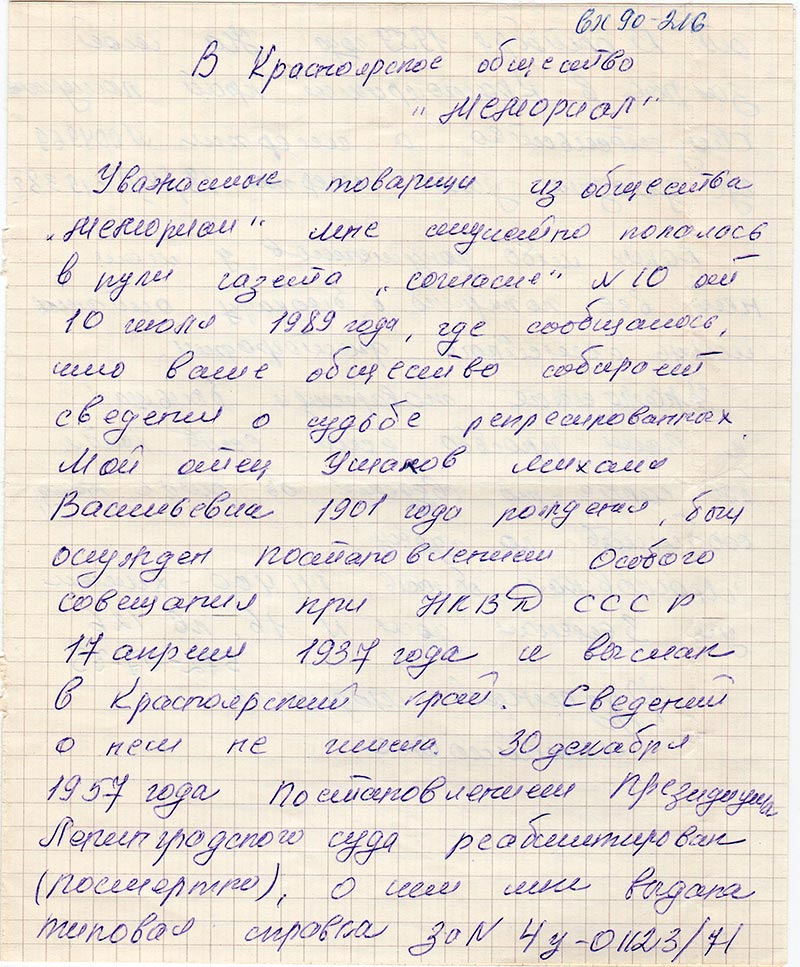 вх 90-216
В Красноярское общество
"Мемориал"
Уважаемые товарищи из общества
"Мемориал" мне случайно попалась
в руки газета "Согласие" N 10 от
10 июля 1989 года, где сообщалось,
что ваше общество собирает
сведения о судьбе репресированных.
Мой отец Ушаков Михаил
Васильевич 1901 года рождения, был
осужден постановлением Особого
совещания при НКВД СССР
17 апреля 1937 года и выслан
в Красноярский край. Сведений
о нем не имела. 30 декабря
1957 года постановлением Президиума
Ленинградского суда реабилитирован
(посмертно), о чем мне выдана
типовая справка за N 4у-01123/71